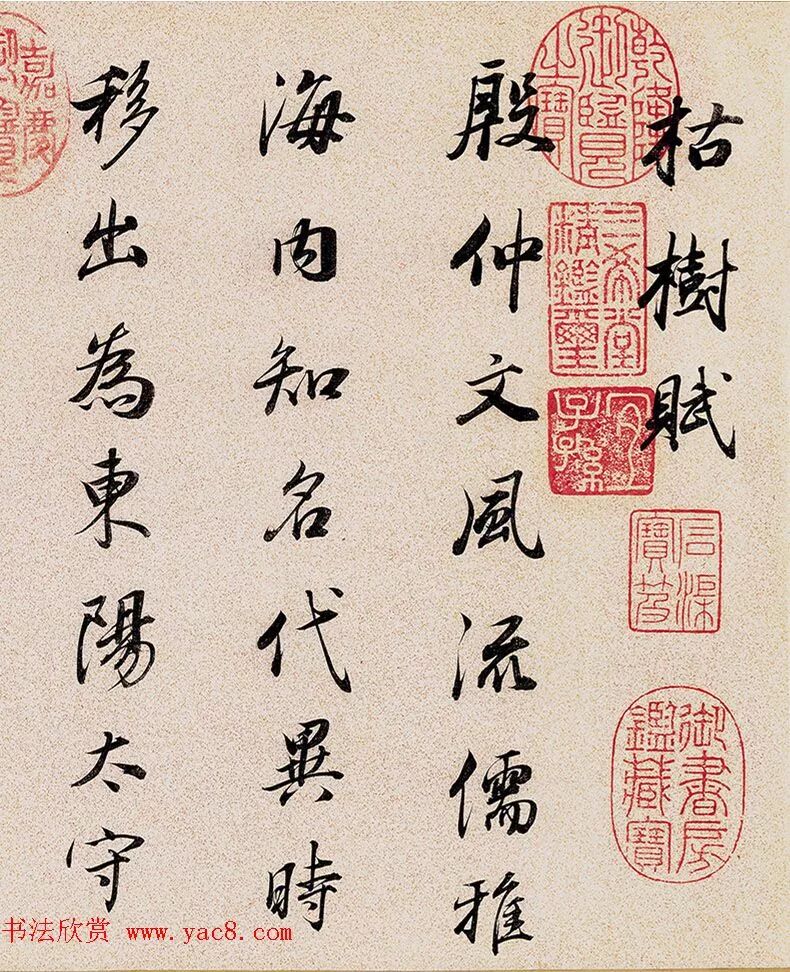 枯樹賦
殷仲文風流儒雅
海内知名代異時
移出為東陽太守
乾隆御覽之寶
三希堂精鑑璽
宜子孫
御書房鑑藏寶
嘉慶御覽
书法欣赏 www.yac8.com